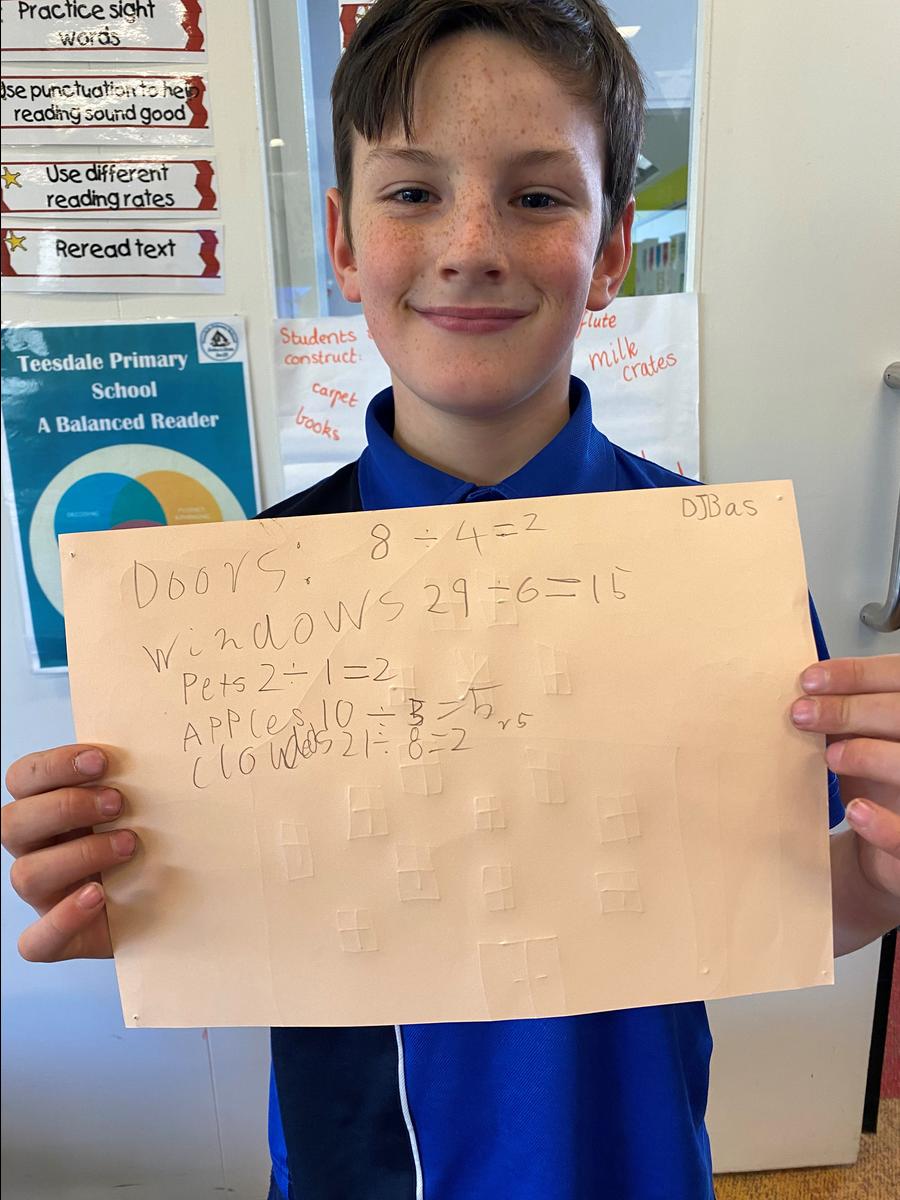 Practice sight
words
Use punctuation to help
reading sound good
Use different
reading rates
Reread text
Teesdale Primary
School
A Balanced Reader
DECODING
Students
construct:
carpet
books
flute
milk
crates
DJBas
Doors: 8 ÷ 4 = 2
windows 29 ÷ 6 = 15
Pets 2 ÷ 1 = 2
APPles 10 ÷ 3 = 5
21 ÷ 8 = 2 r5